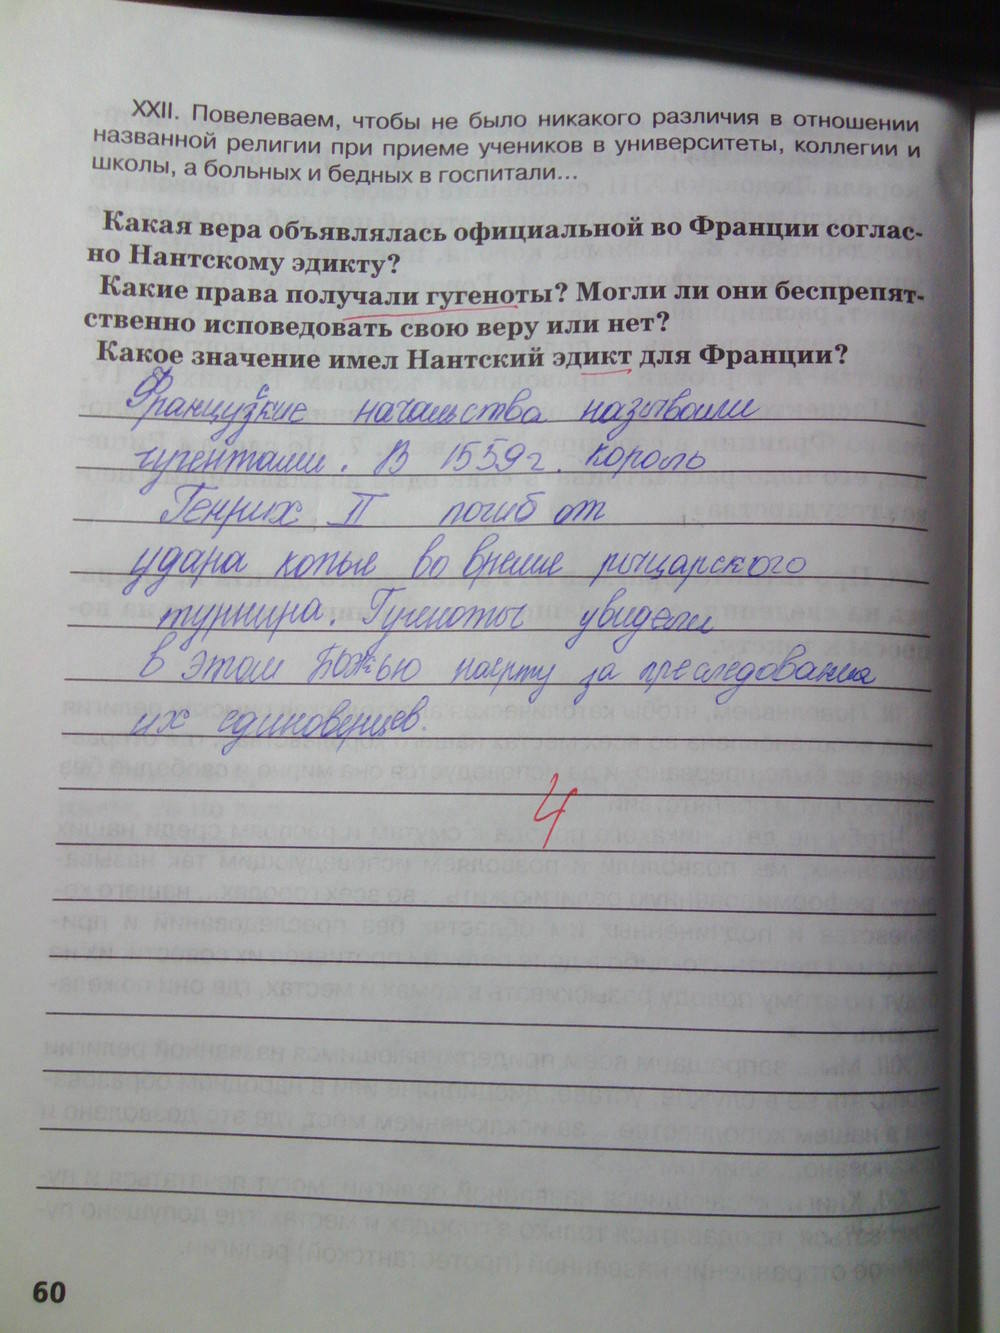 XXII. Повелеваем, чтобы не было никакого различия в отношении
названной религии при приеме учеников в университеты, коллегии и
школы, а больных и бедных в госпитали...
Какая вера объявлялась официальной во Франции соглас-
но Нантскому эдикту?
Какие права получали гугеноты? Могли ли они беспрепят-
ственно исповедовать свою веру или нет?
Какое значение имел Нантский эдикт для Франции?
Французские начальства называли
гугентами. В 1559г. король
Генрих II погиб от
удара копья во время рыцарского
турнира. Гугеноты увидели
в этом Божью за преследования
их единоверцев.
4
60